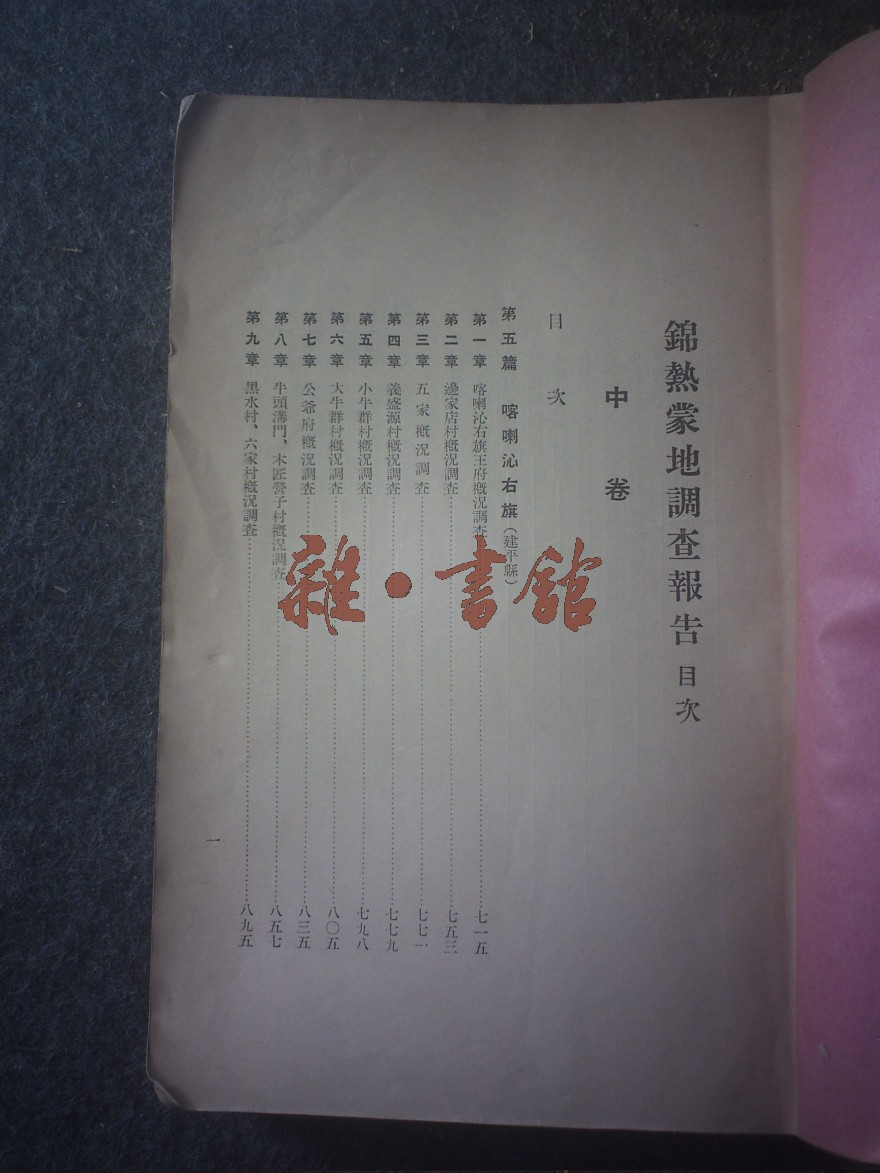 錦熱蒙地調查報告 目次
中卷
目次
第五篇 喀喇沁右旗(建平縣)
第一章 喀喇沁右旗王府概況調查……七一五
第二章 邊家店村概況調查……七五三
第三章 五家概況調查……七七一
第四章 義盛源村概況調查……七七九
第五章 小牛群村概況調查……七九八
第六章 大牛群村概況調查……八〇五
第七章 公爺府概況調查……八三五
第八章 牛頭溝門、木匠營子村概況調查……八五七
第九章 黑水村、六家村概況調查……八九五
一
雜·書館